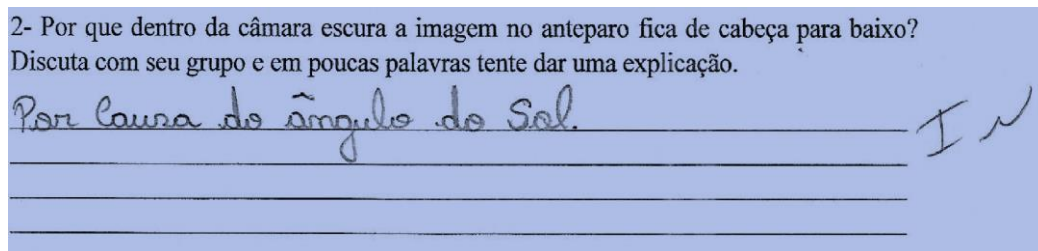 2- Por que dentro da câmara escura a imagem no anteparo fica de cabeça para baixo?
Discuta com seu grupo e em poucas palavras tente dar uma explicação.
Por Causa do ângulo do Sol.
I